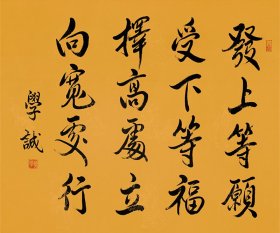 發上等願
受下等福
擇高處立
向寬處行
學誠